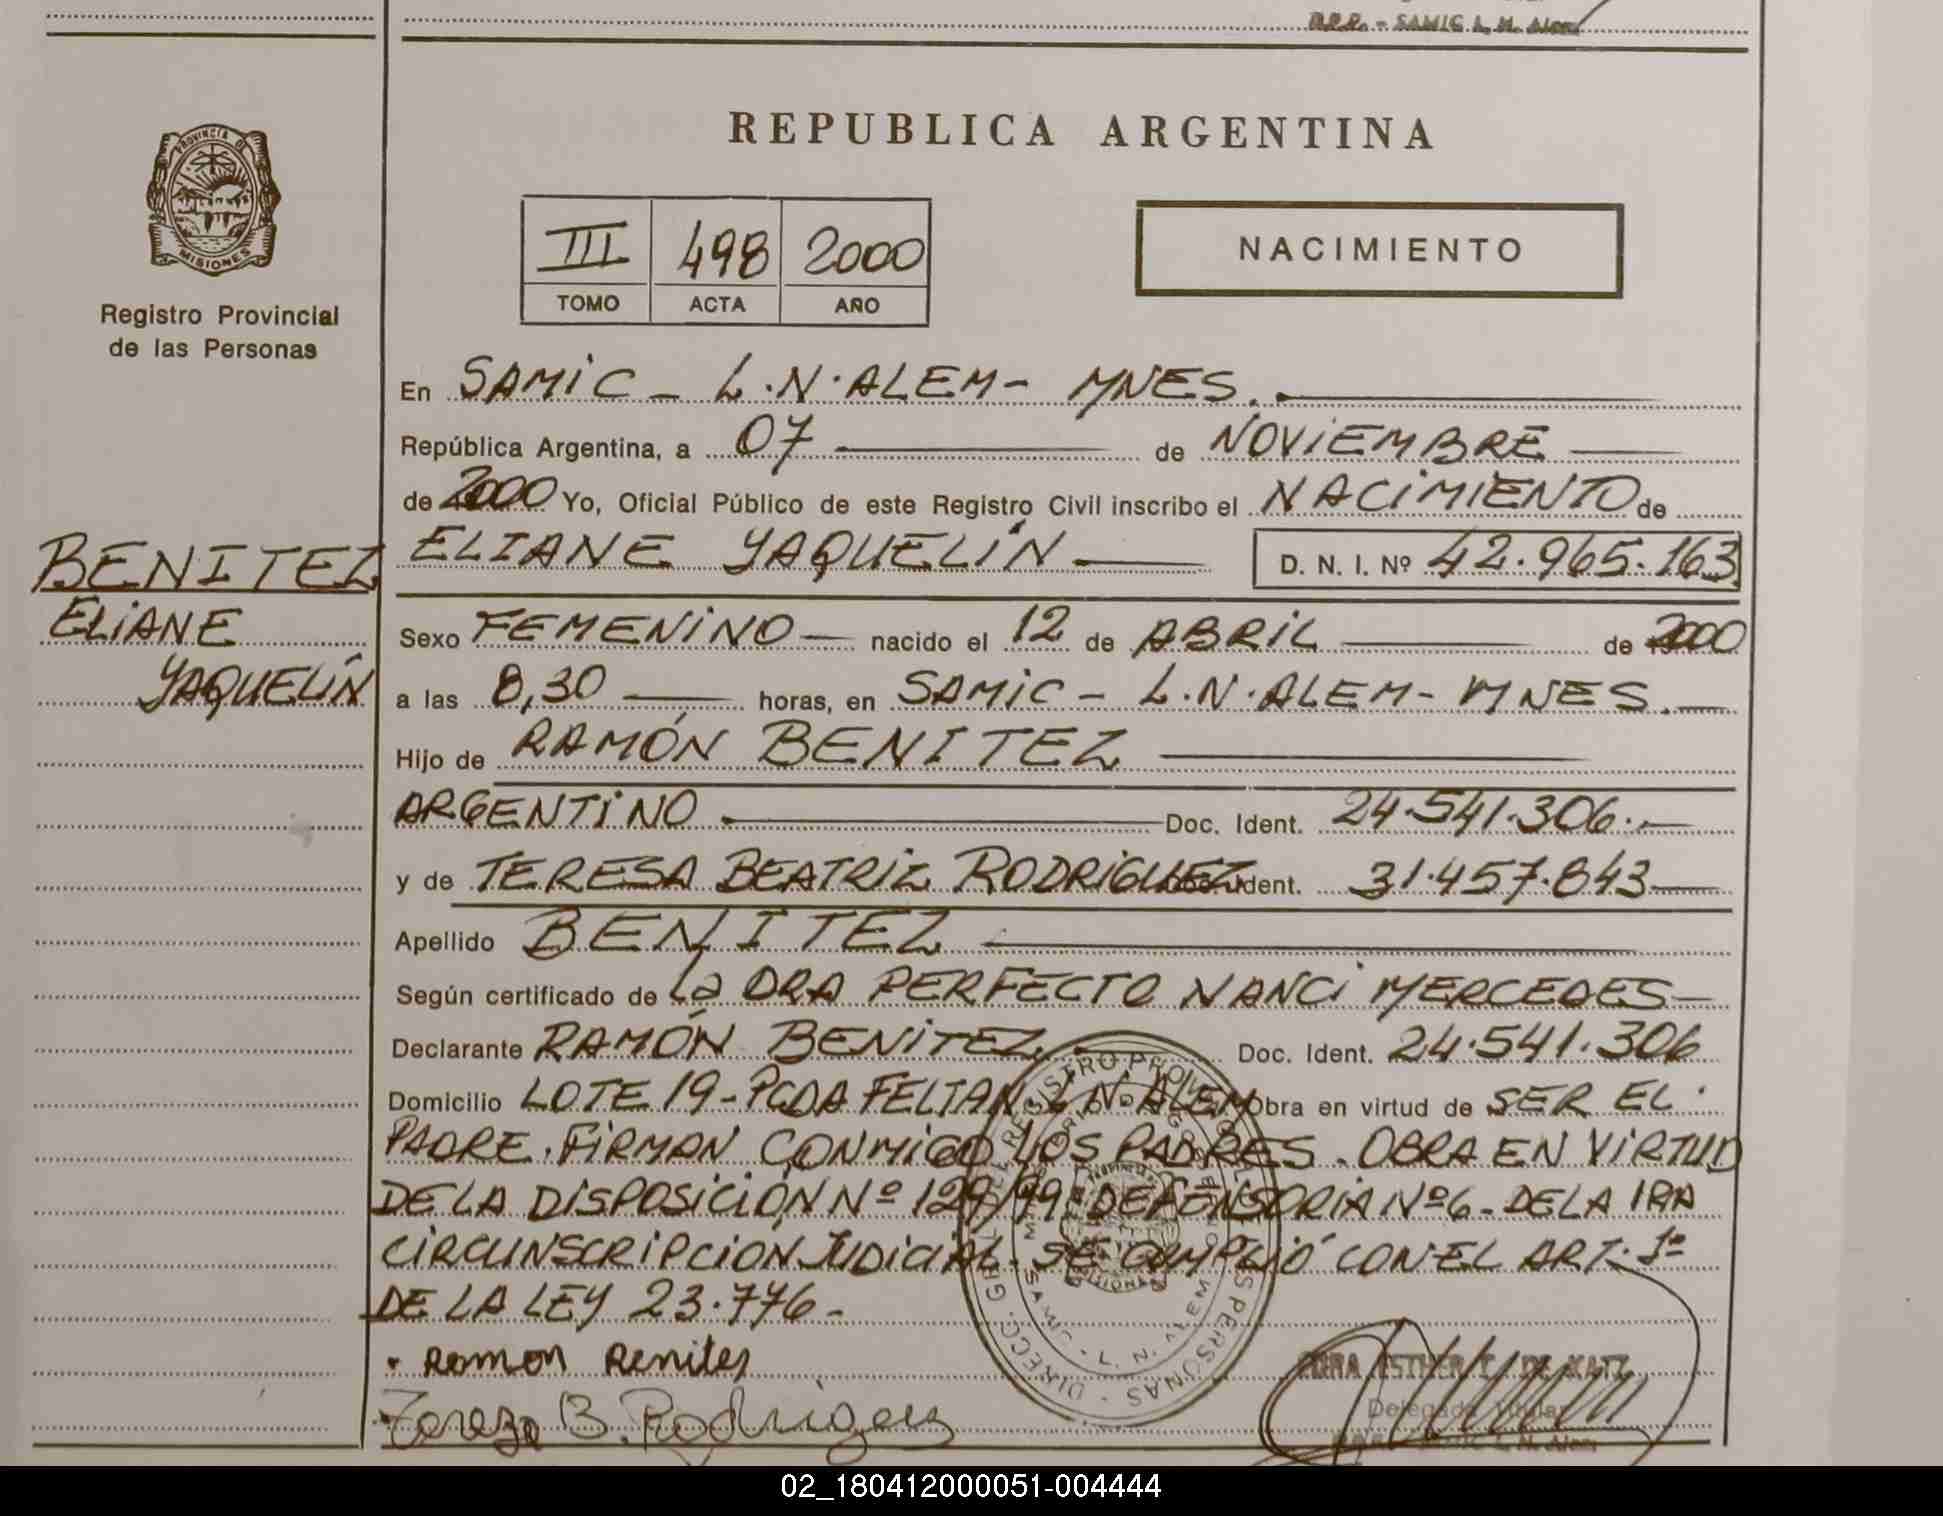 D.P.P. - SAMIC L. N. Alem
REPUBLICA ARGENTINA
PROVINCIA DE
MISIONES
Registro Provincial
de las Personas
III 498 2000
TOMO ACTA AÑO
NACIMIENTO
En SAMIC - L.N.ALEM - MNES.
República Argentina, a 07 de NOVIEMBRE
de 2000 Yo, Oficial Público de este Registro Civil inscribo el NACIMIENTO de
ELIANE YAQUELÍN D. N. I. Nº 42.965.163
BENITEZ
ELIANE
YAQUELÍN
Sexo FEMENINO nacido el 12 de ABRIL de 2000
a las 8,30 horas, en SAMIC - L.N.ALEM - MNES.
Hijo de RAMÓN BENITEZ
ARGENTINO Doc. Ident. 24.541.306.-
y de TERESA BEATRIZ RODRIGUEZ Doc. Ident. 31.457.843
Apellido BENITEZ
Según certificado de La DRA PERFECTO NANCI MERCEDES
Declarante RAMÓN BENITEZ Doc. Ident. 24.541.306
Domicilio LOTE 19 - PCDA FELTAN L N. ALEM Obra en virtud de SER EL
PADRE. FIRMAN CONMIGO LOS PADRES. OBRA EN VIRTUD
DE LA DISPOSICIÓN Nº 129/99. DEFENSORIA Nº 6 - DE LA 1RA
CIRCUNSCRIPCION JUDICIAL. SE CUMPLIÓ CON EL ART. 1º
DE LA LEY 23.776 -
Ramon Benitez
Teresa B. Rodriguez
ESTHER DE KATZ
Delegada Titular
L. N. Alem
02_180412000051-004444